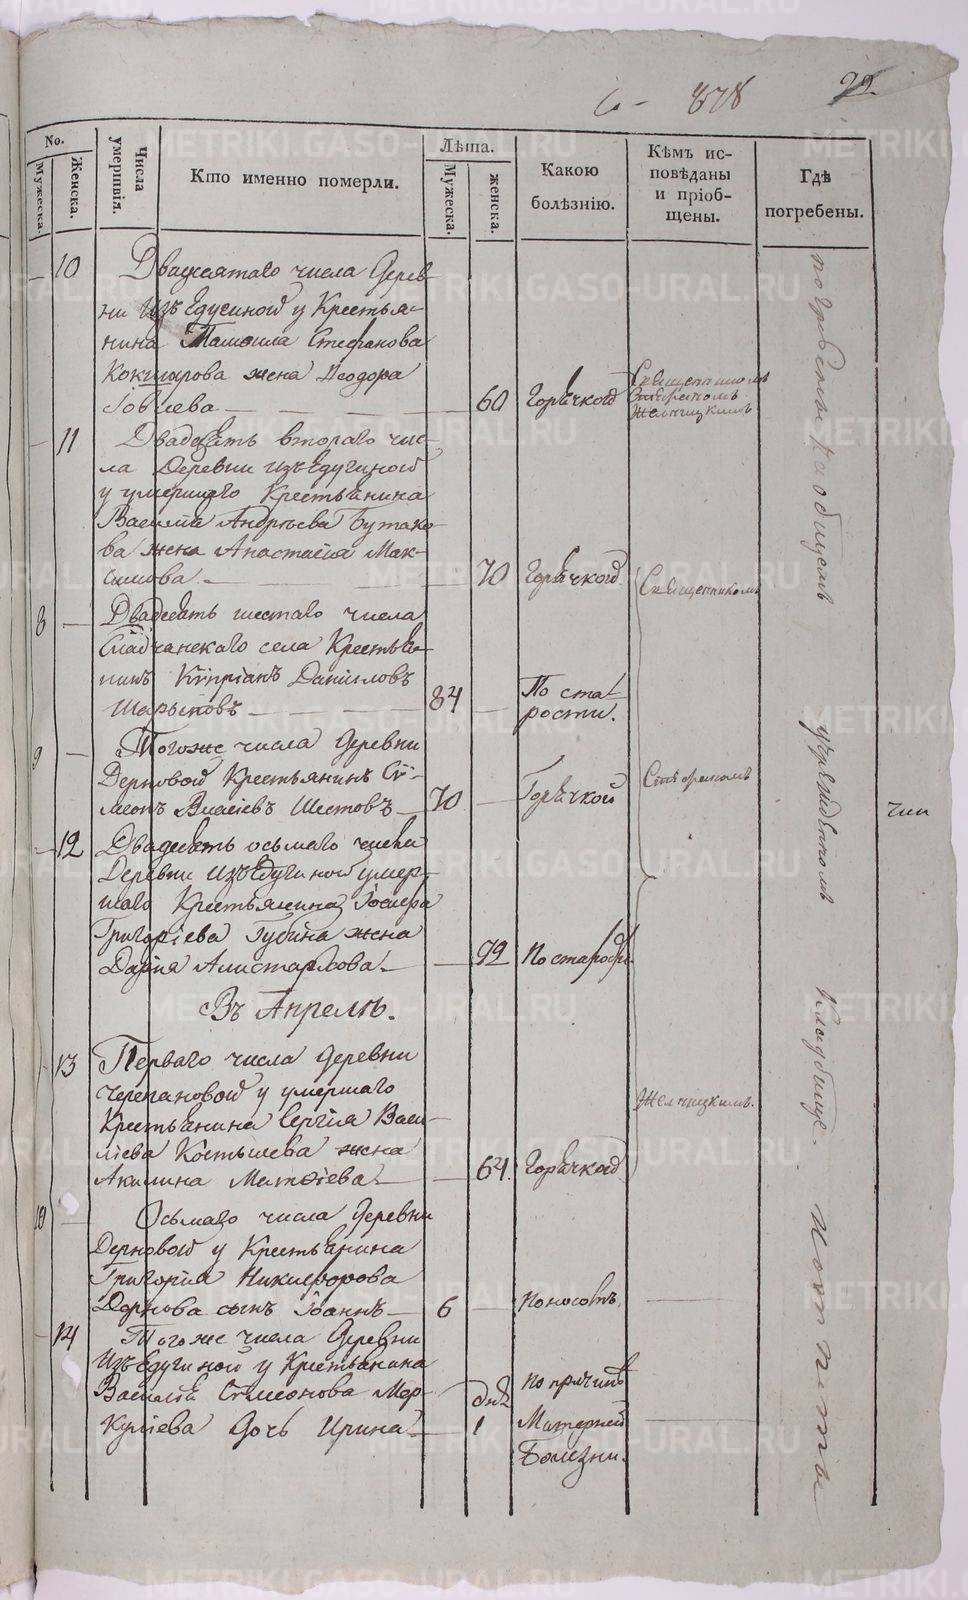 878
No.
Мужеска.
Женска.
Числа умершвія.
Кто именно померли.
Лѣта.
Мужеска.
женска.
Какою болѣзнію.
Кѣмъ исповѣданы и пріобщены.
Гдѣ погребены.
10
Двадсятаго числа Дерев-
ни Изъедугиной у Крестья-
нина Стефанова
Кокшарова жена Ѳеодора
Іовлева
60
Горячкой
Священникомъ
Стефаномъ
11
Двадсеть втораго чис-
ла Деревни Изъедугиной
у умершаго Крестьянина
Василія Андрѣева Бутако-
ва жена Анастасія Мак-
симова
70
Горячкой.
Священникомъ
8
Двадсеть шестаго числа
села Крестья-
нинъ Кипріанъ Даниловъ
Шарыповъ
84
По ста-
рости.
9
Тогоже числа Деревни
Дерновой Крестьянинъ Сі-
меонъ Власіевъ Шестовъ
70
Горячкой
Стефаномъ
12
Двадсеть осьмаго числа
Деревни Изъедугиной умер-
шаго Крестьянина
Григоріева Губина жена
Дарія
92
По старости.
Въ Апрелѣ.
13
Перваго числа Деревни
Черепановой у умершаго
Крестьянина Сергія Васи-
ліева Костылева жена
Акилина Матѳіева
64.
Горячкой
10
Осьмаго числа Деревни
Дерновой у Крестьянина
Григорія Никифорова
Дернова сынъ Іоаннъ
6
Поносомъ
14
Тогоже числа Деревни
Изъедугиной у Крестьянина
Василія Симеонова Мер-
куліева Дочь Ирина
1
по причинѣ
Матерней
Болезни.
на общемъ
учрежденномъ
Кладбище.
METRIKI.GASO-URAL.RU